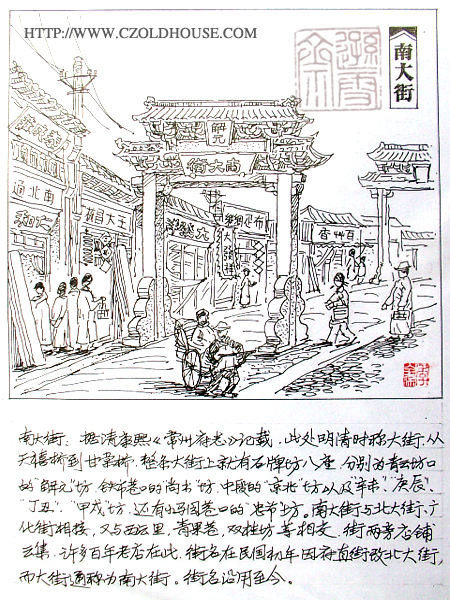 HTTP://WWW.CZOLDHOUSE.COM
南大街
解元
南大街
南北通
南大街:据清康熙《常州府志》记载,此处明清时称大街,从
天禧桥到甘棠桥,整条大街上就有石牌坊八座,分别为青云坊口
的"解元"坊,铁市巷口的"尚书"坊,中段的"京北"坊以及"辛未"、"庚辰"、
"丁丑"、"甲戌"坊,还有小马园巷口的"忠节"坊。南大街与北大街、广
化街相接,又与西云里,青果巷,双桂坊等相交,街两旁店铺
云集,许多百年老店在此,街名在民国初年因府直街改北大街,
而大街通称为南大街。街名沿用至今。